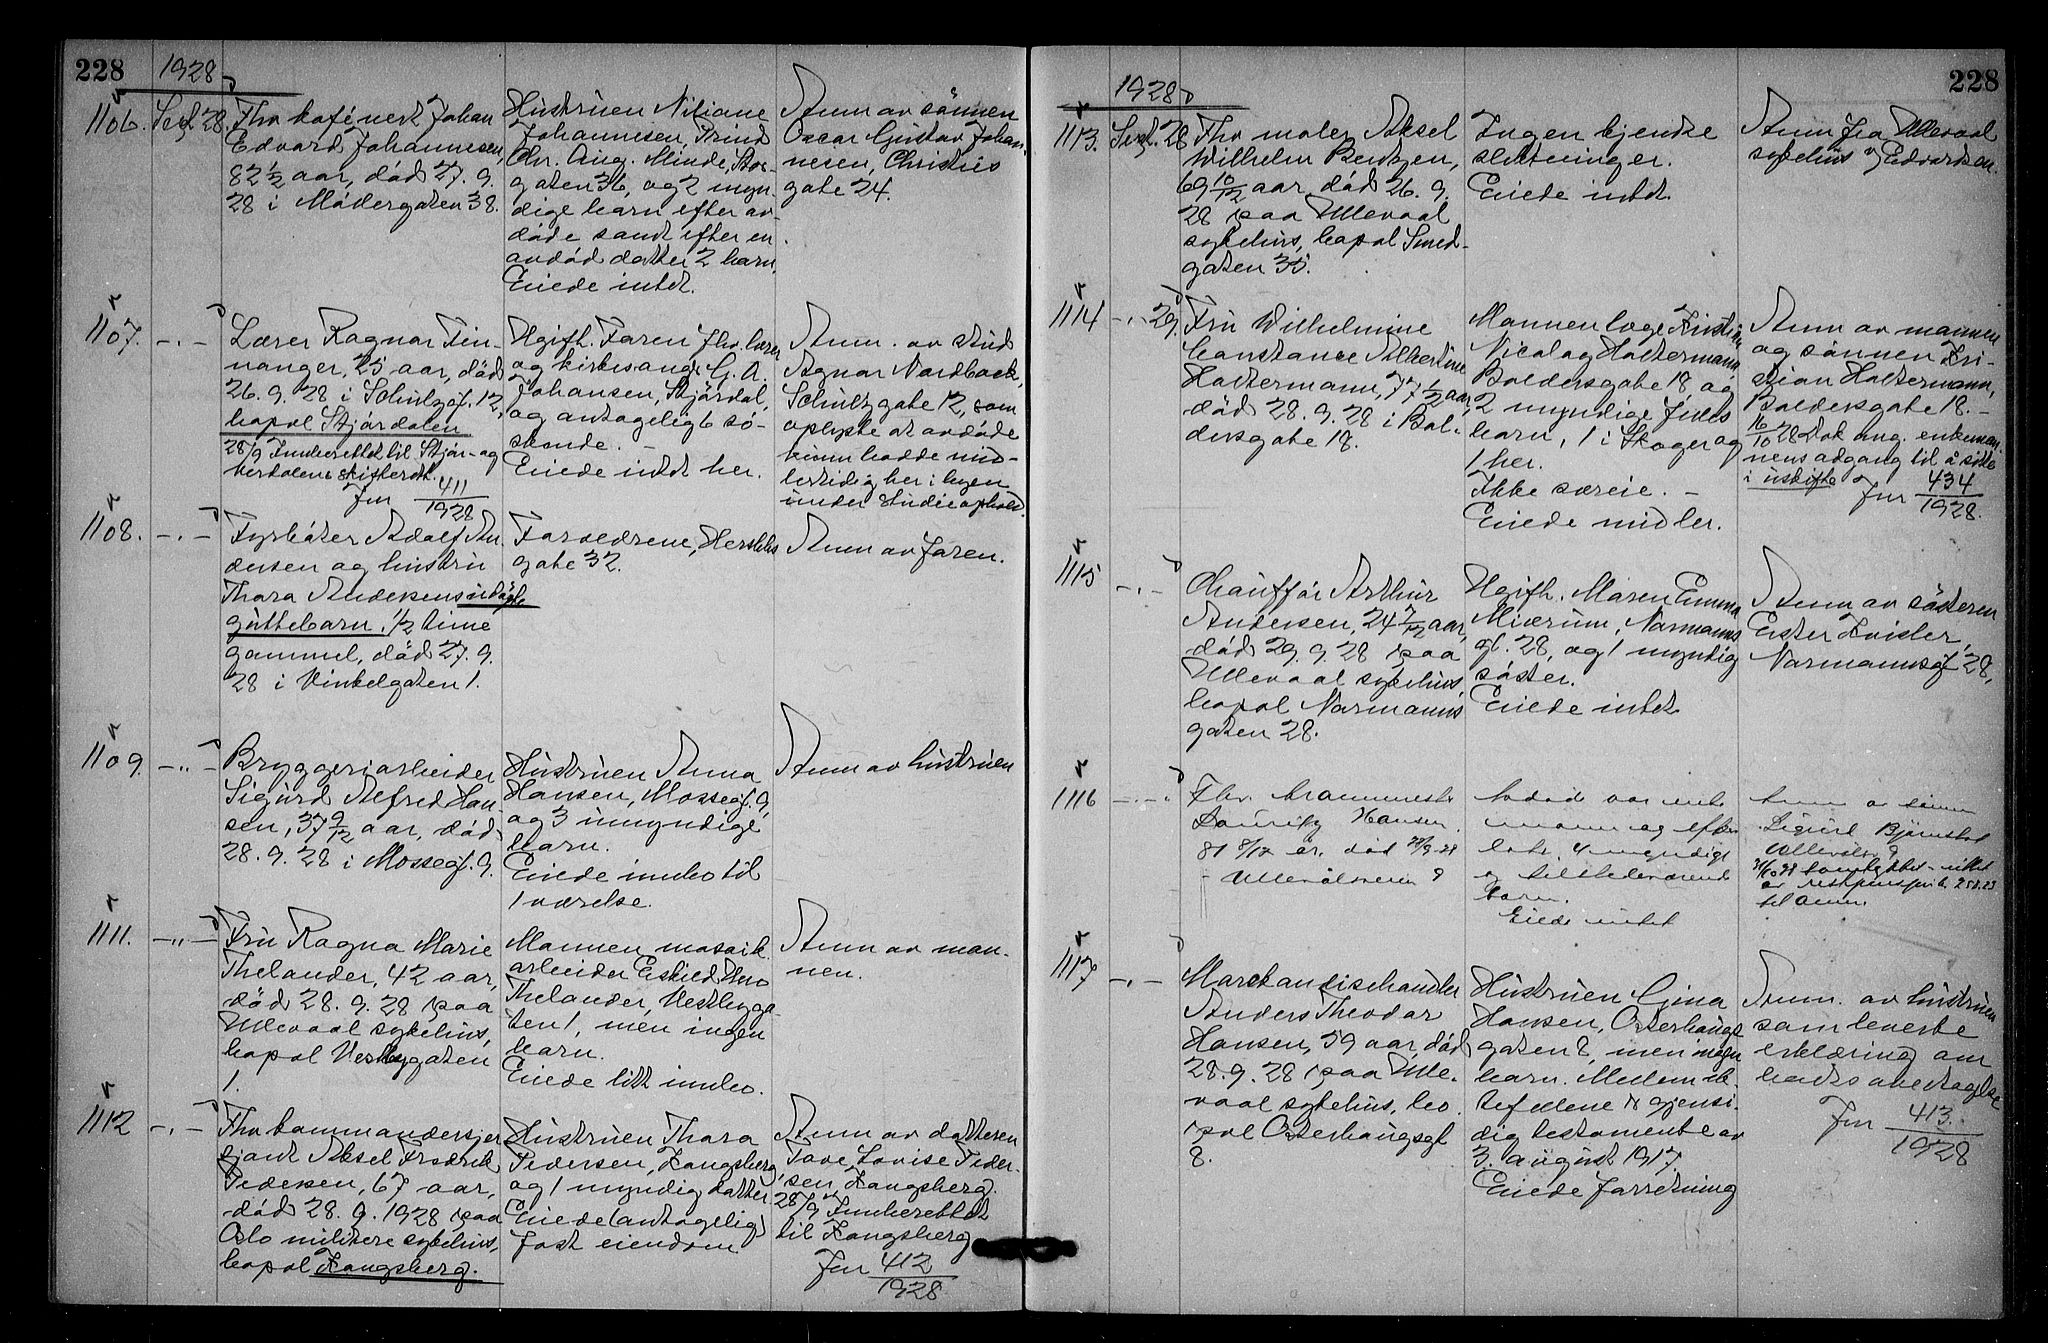 228
1928
1106. Sept 28.
Fhv kafévert Johan
Edvard Johannesen,
82 1/2 aar, död 27. 9.
28 i Mödergaten 38.
Hustruen Niliane
Johannesen,
Chr. Aug. Minde, Stor-
gaten 36, og 2 myn-
dige barn efter av-
döde samt efter en
avdöd datter 2 barn.
Eiede intet.
Anm av sönnen
Oscar Gustav Johan-
nesen, Christies
gate 24.
1107. -.-
Lærer Ragnar Fin-
nanger, 25 aar, död
26. 9. 28 i Schultzgt. 12,
bopæl Stjördalen
28/9 Innberettet til Stjör- og
Verdalens skifterett.
Jnr 411
1928
Ugift. Faren fhv. lærer
og kirkesang. G. A.
Johansen, Stjördal,
og antagelig 6 sö-
skende. -
Eiede intet her.
Anm. av stud
Agnar Nordback,
Schultzgate 12, som
oplyste at avdöde
kunn hadde mid-
lertidig her i byen
under studieophold.
1108. -.-
Fyrböter Adolf An-
dersen og hustru
Thora Andersens udöpte
guttebarn, 1/2 time
gammel, död 27. 9.
28 i Vinkelgaten 1.
Forældrene, Herslebs
gate 32.
Anm av faren.
1109. -..-
Bryggeriarbeider
Sigurd Alfred Han-
sen, 37 9/12 aar, död
28. 9. 28 i Mossegt. 9.
Hustruen Anna
Hansen, Mossegt. 9,
og 3 umyndige
barn.
Eiede innbo til
1 værelse.
Anm av hustruen
1111. -..-
Fru Ragna Marie
Thelander, 42 aar,
död 28. 9. 28 paa
Ullevaal sykehus,
bopæl Vestbygaten
1.
Mannen mosaik
arbeider Eskild Uno
Thelander, Vestbyga-
ten 1, men ingen
barn.
Eiede litt innbo.
Anm av man-
nen.
1112 -.-
Fhv kommandersjer
sjant Aksel Fredrik
Pedersen, 67 aar,
död 28. 9. 1928 paa
Oslo militære sykehus,
bopæl Kongsberg.
Hustruen Thora
Pedersen, Kongsberg,
og 1 myndig datter
Eiede (antagelig)
fast eiendom
Anm av datteren
Tove Lovise Peder-
sen, Kongsberg.
28/9 Innberettet
til Kongsberg
Jnr 412
1928
228
1928
1113. Sept. 28
Fhv maler Aksel
Wilhelm Bentzen,
69 10/12 aar, död 26. 9.
28 paa Ullevaal
sykehus, bopæl Smed-
gaten 35.
Ingen kjendte
slektninger.
Eiede intet
Anm fra Ullevaal
sykehus v/ Edvardsen.
1114 -.- 29.
Fru Wilhelmine
Constance Albertine
Holtermann, 77 1/2 aar,
död 28. 9. 28 i Bal-
dersgate 18.
Mannen læge Kristian
Nicolay Holtermann,
Baldersgate 18 og
2 myndige fælles
barn, 1 i Skoger og
1 her.
Ikke særeie. -
Eiede midler.
Anm av mannen
og sönnen Kri-
stian Holtermann,
Baldersgate 18. -
16/10 28 Dok ang. enkeman
nens adgang til å sitte
i uskifte Jnr 434
1928.
1115 -.-
Chaufför Arthur
Andersen, 24 7/12 aar,
död 29. 9. 28 paa
Ullevaal sykehus,
bopæl Normanns
gaten 28.
Ugift. Moren Emma
Miærum, Normanns
gt. 28, og 1 myndig
söster.
Eiede intet
Anm av sösteren
Ester Kvisler,
Normannsgt 28,
1116 -.-.
Fhv. brannmester
Lauritz Hansen,
81 8/12 år, död 28/9-28
Ullevålsveien 9
Avdöde var enke
mann og efter
lot 4 myndige
og tilstedeværende
barn.
Eiede intet
Anm av sönn
Sigurd Björnstad
Ullevålsv 9
til anm.
1117 -.-
Marchandisehandler
Anders Theodor
Hansen, 59 aar, död
28. 9. 28 paa Ulle-
vaal sykehus, bo-
pæl Osterhausgt
8.
Hustruen Gina
Hansen, Osterhaus
gaten 8, men ingen
barn. Mellem æk-
tefellene er gjensi-
dig testamente av
3. august 1917
Eiede forretning
Anm. av hustruen
som leverte
erklæring om
boets overtagelse
Jnr 413.
1928